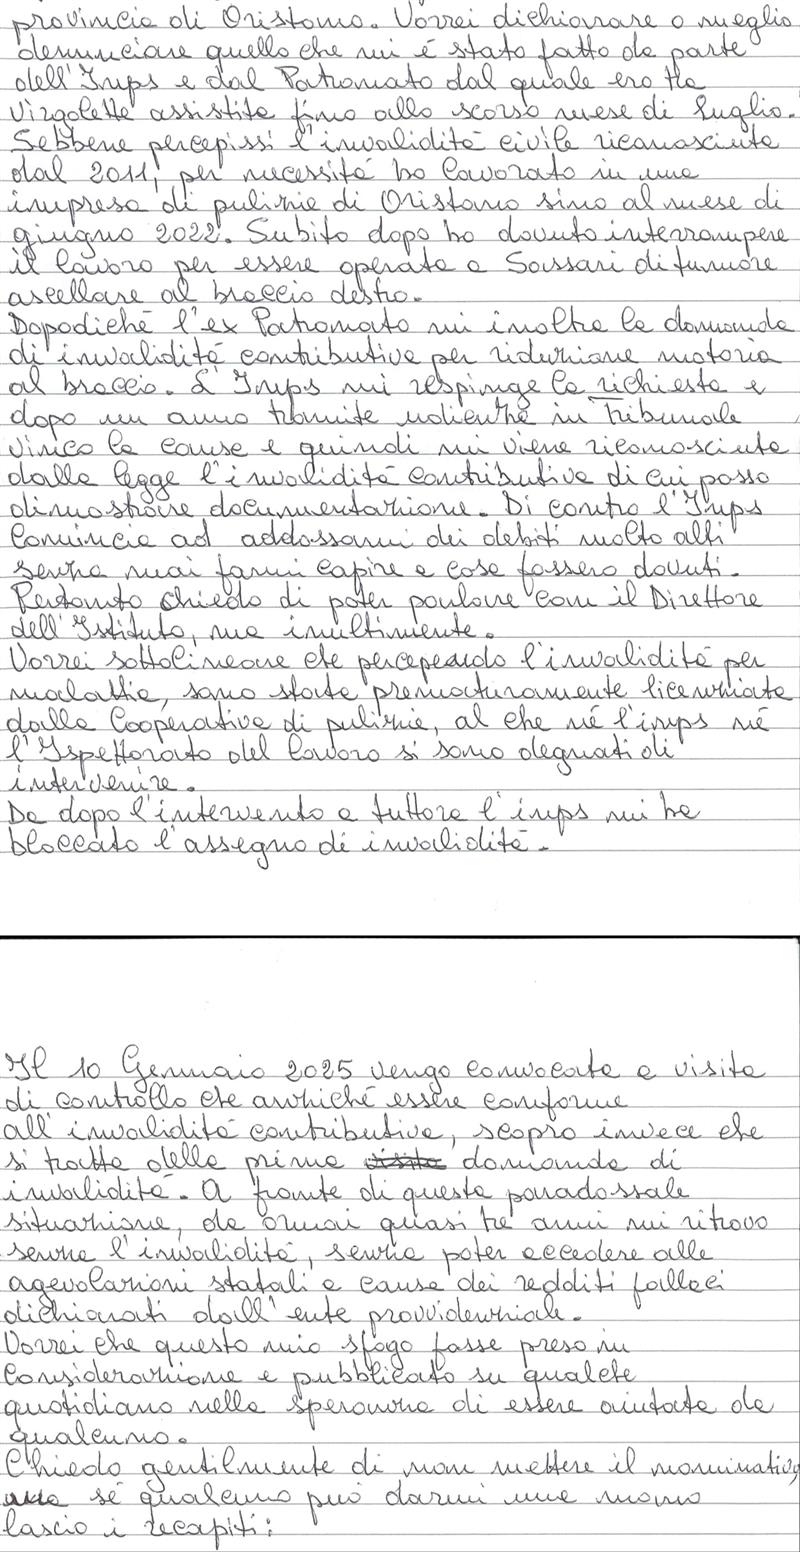 provincia di Oristano. Vorrei dichiarare o meglio
denunciare quello che mi é stato fatto da parte
dell'Inps e dal Patronato dal quale ero tra
virgolette assistita fino allo scorso mese di Luglio.
Sebbene percepissi l'invalidità civile riconosciuta
dal 2011, per necessità ho lavorato in una
impresa di pulizie di Oristano sino al mese di
giugno 2022. Subito dopo ho dovuto interrompere
il lavoro per essere operata a Sassari di tumore
ascellare al braccio destro.
Dopodiché l'ex Patronato mi inoltra la domanda
di invalidità contributiva per riduzione motoria
al braccio. L'Inps mi respinge la richiesta e
dopo un anno tramite udienza in Tribunale
vinco la causa e quindi mi viene riconosciuta
dalla legge l'invalidità contributiva di cui posso
dimostrare documentazione. Di contro l'Inps
comincia ad addossarmi dei debiti molto alti
senza mai farmi capire a cosa fossero dovuti.
Pertanto chiedo di poter parlare con il Direttore
dell'Istituto, ma inultimente.
Vorrei sottolineare che percependo l'invalidità per
malattia, sono stata prematuramente licenziata
dalla Cooperativa di pulizie, al che né l'inps né
l'Ispettorato del lavoro si sono degnati di
intervenire.
Da dopo l'intervento a tuttora l'inps mi ha
bloccato l'assegno di invalidità.
Il 10 Gennaio 2025 vengo convocata a visita
di controllo che anziché essere conforme
all'invalidità contributiva, scopro invece che
si tratta della prima visita domanda di
invalidità. A fronte di questa paradossale
situazione, da ormai quasi tre anni mi ritrovo
senza l'invalidità, senza poter accedere alle
agevolazioni statali a causa dei redditi fallaci
dichiarati dall'ente provvidenziale.
Vorrei che questo mio sfogo fosse preso in
considerazione e pubblicato su qualche
quotidiano nella speranza di essere aiutata da
qualcuno.
Chiedo gentilmente di non mettere il nominativo,
ma sé qualcuno può darmi una mano
lascio i recapiti: